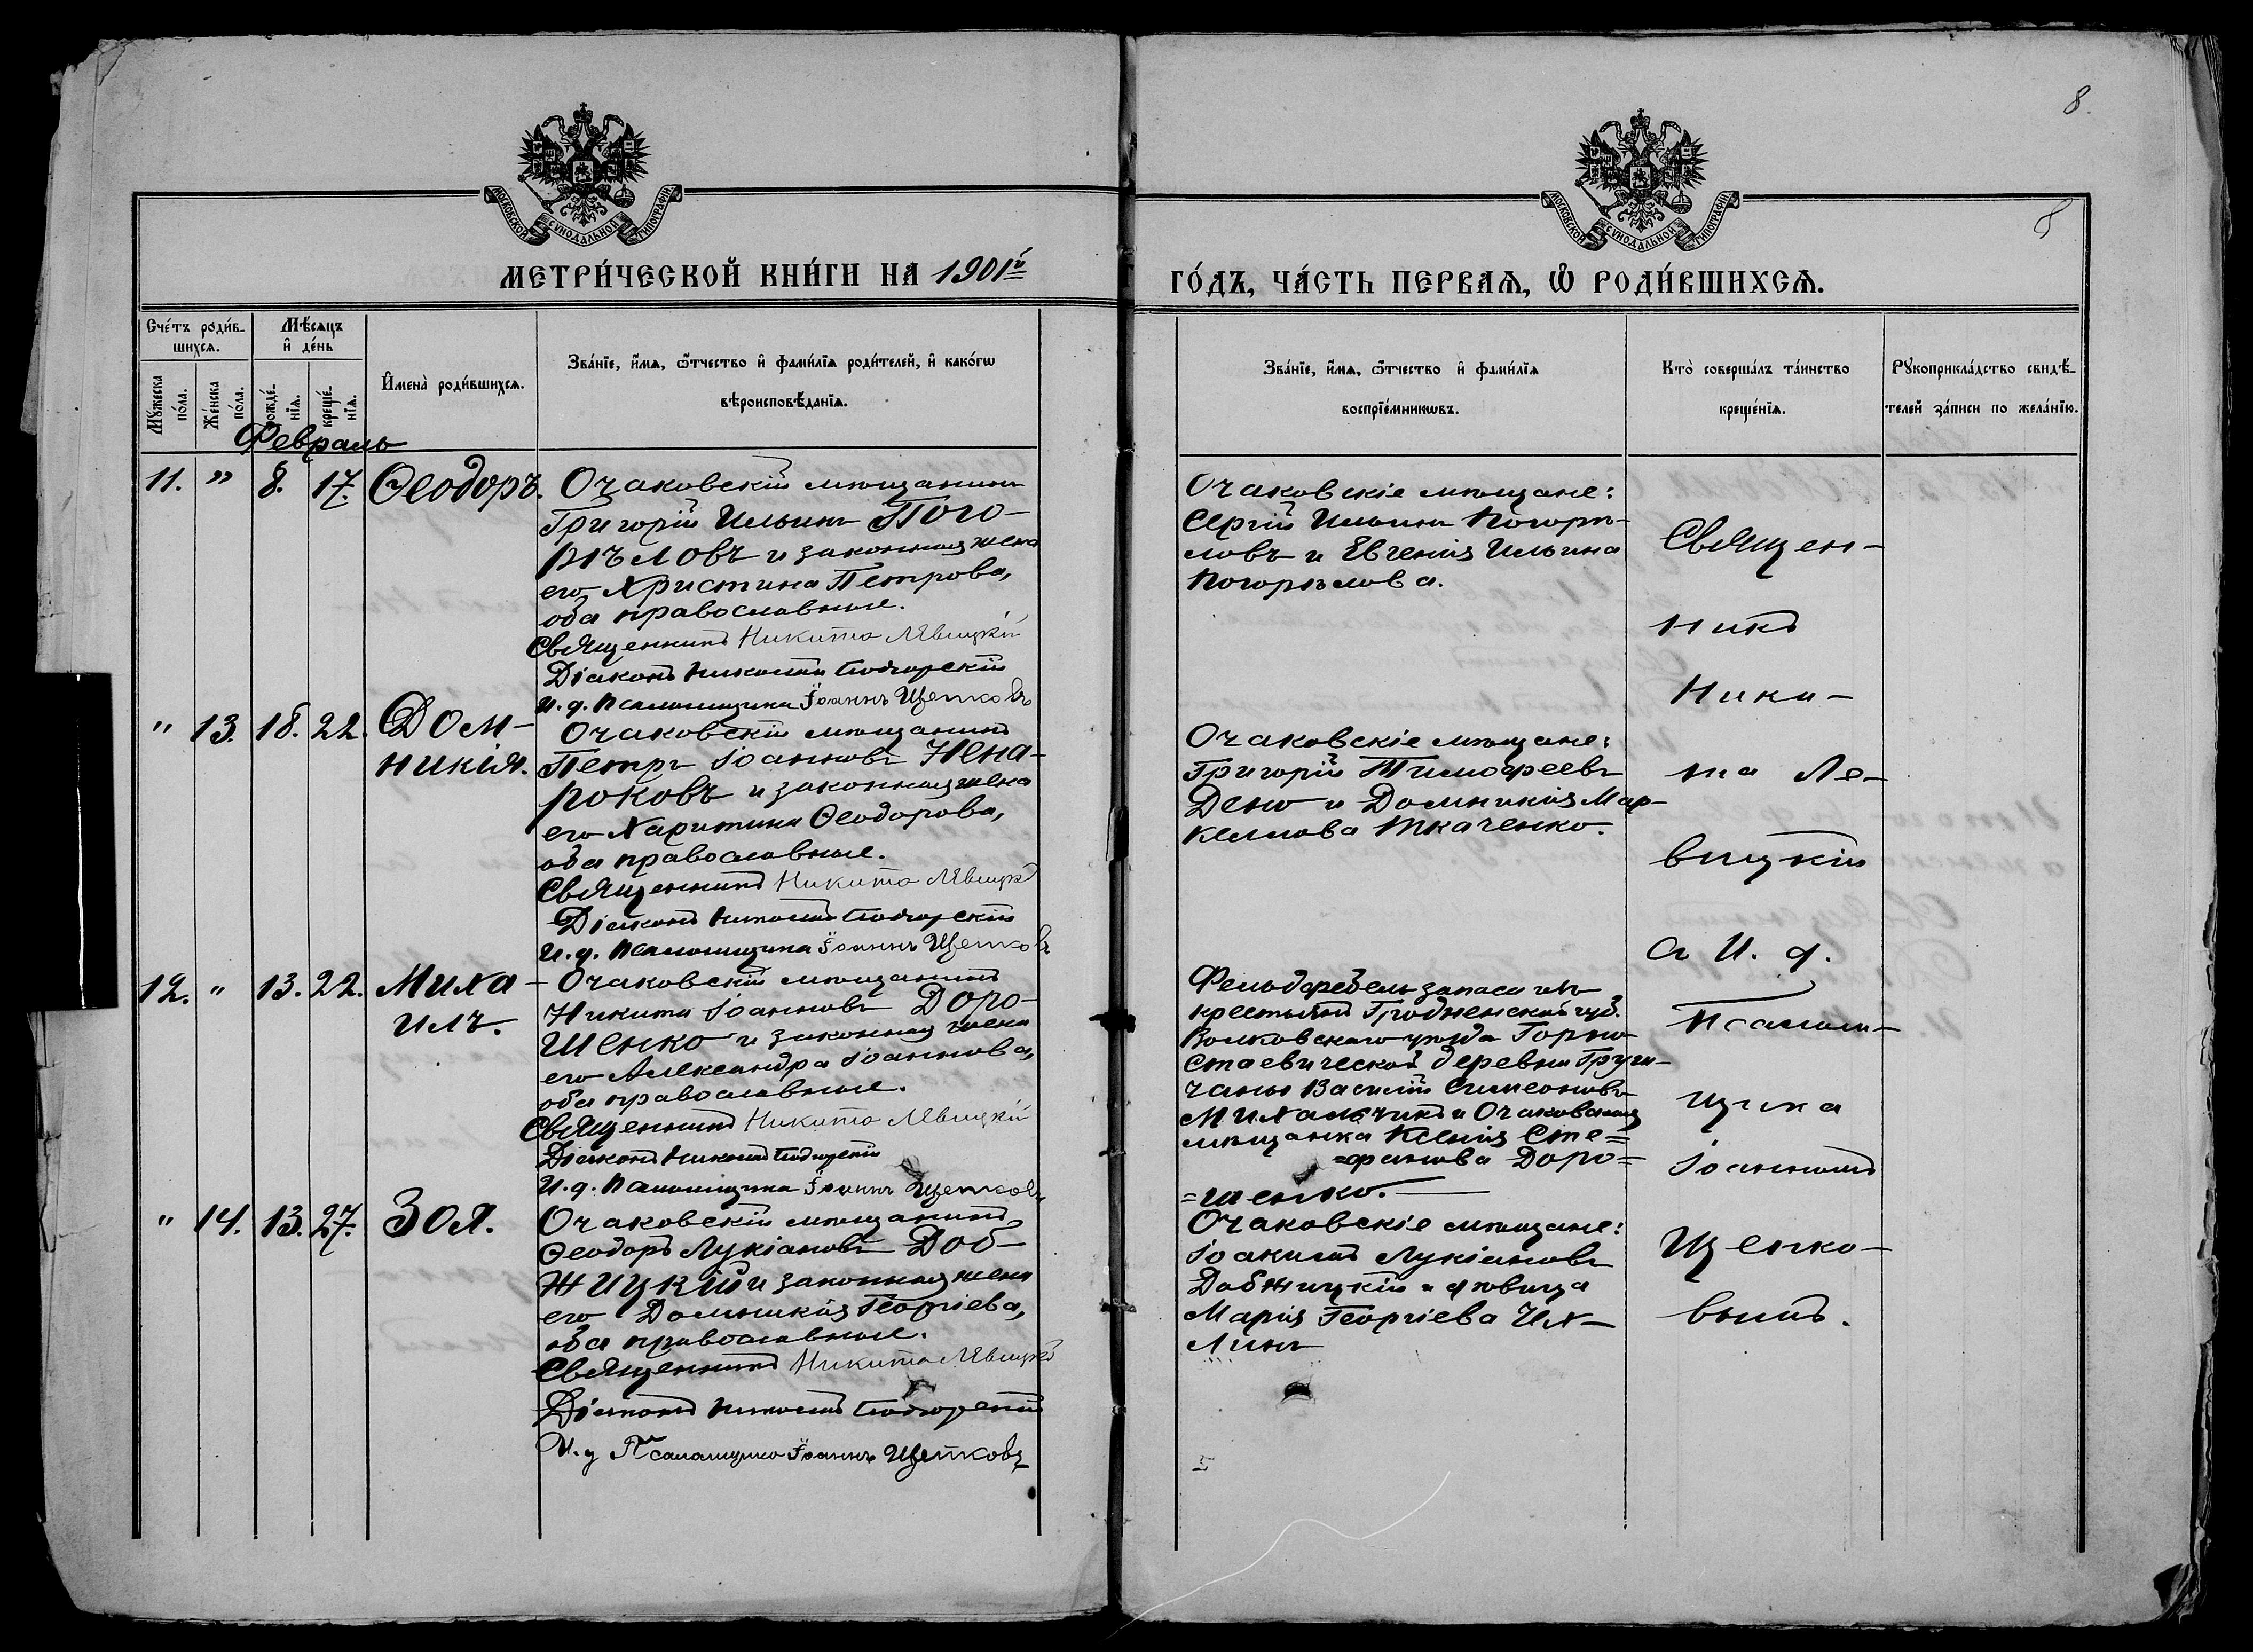 8.
8
МОСКОВСКОЙ СѴНОДАЛЬНОЙ ТИПОГРАФІИ
МОСКОВСКОЙ СѴНОДАЛЬНОЙ ТИПОГРАФІИ
МЕТРИ́ЧЕСКОЙ КНИ́ГИ НА 1901й
ГО́ДЪ, ЧА́СТЬ ПЕРВАѦ, Ѡ҆ РОДИ́ВШИХСѦ.
Сче́тъ роди́в-
шихсѧ.
Мѣ́сѧцъ
и҆ де́нь
Мꙋ́жеска
по́ла.
Же́нска
по́ла.
рожде́-
нїѧ.
креще́-
нїѧ.
И҆мена̀ роди́вшихсѧ.
Зва́нїе, и҆́мѧ, ѻ҆́тчество и҆ фами́лїѧ роди́телей, и҆ како́гѡ
вѣроисповѣ́данїѧ.
Зва́нїе, и҆́мѧ, ѻ҆́тчество и҆ фами́лїѧ
воспрїе́мникѡвъ.
Кто̀ соверша́лъ та́инство
креще́нїѧ.
Рꙋкоприкла́дство свидѣ́-
телей за́писи по жела́нїю.
Февраль
11. " 8. 17. Ѳеодоръ.
Очаковскій мѣщанинъ
Григорій Ильинъ Пого-
рѣловъ и законная жена
его Христина Петрова,
оба православные.
Священникъ Никита Лѣвицкій
Діаконъ Николай Подгорскій
И. д. Псаломщика Іоаннъ Щепковъ
Очаковскіе мѣщане:
Сергій Ильинъ Погорѣ-
ловъ и Евгенія Ильина
Погорѣлова.
" 13. 18. 22. Дом-
никія.
Очаковскій мѣщанинъ
Петръ Іоанновъ Нена-
роковъ и законная жена
его Харитина Ѳеодорова,
оба православные.
Священникъ Никита Лѣвицкій
Діаконъ Николай Подгорскій
И. д. Псаломщика Іоаннъ Щепковъ
Очаковскіе мѣщане:
Григорій Тимофеевъ
и Домникія Мар-
келлова Ткаченко.
12. " 13. 22. Миха-
илъ.
Очаковскій мѣщанинъ
Никита Іоанновъ Доро-
шенко и законная жена
его Александра Іоаннова,
оба православные.
Священникъ Никита Лѣвицкій
Діаконъ Николай Подгорскій
И. д. Псаломщика Іоаннъ Щепковъ
Фельдфебель запаса изъ
крестьянъ Гродненской губ.
Волковскаго уѣзда Горно-
стаевической деревни
Василій Симеоновъ
Михальчикъ и Очаковская
мѣщанка Ксенія Сте=
=фанова Доро=
=шенко.
" 14. 13. 27. Зоя.
Очаковскій мѣщанинъ
Ѳеодоръ Лукіановъ Доб-
жицкій и законная жена
его Домникія Георгіева,
оба православные.
Священникъ Никита Лѣвицкій
Діаконъ Николай Подгорскій
И. д Псаломщика Іоаннъ Щепковъ
Очаковскіе мѣщане:
Іоакимъ Лукіановъ
Добжицкій и дѣвица
Марія Георгіева
Священ-
никъ
Ники-
та Ле-
вицкій
съ И. д.
Псалом-
щика
Іоанномъ
Щепко-
вымъ.